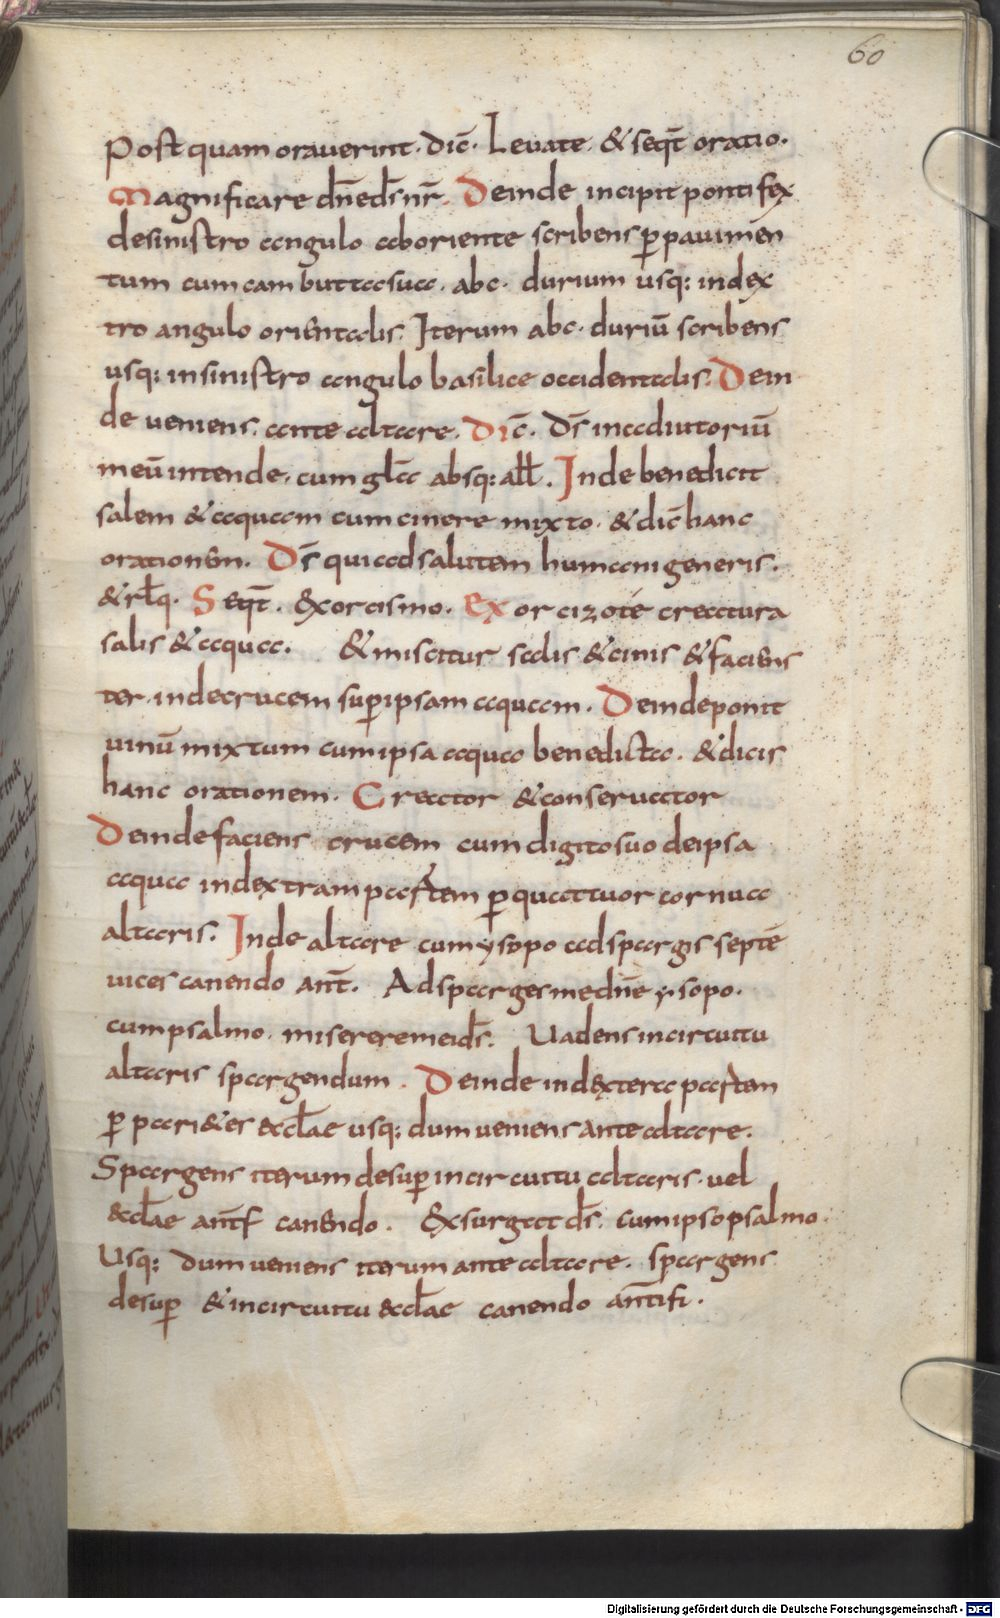 60
Post quam orauerint. dic̄. Leuate. & seqt̄ oratio.
Magnificare dn̄e ds̄ nr̄. Deinde incipit pontifex
de sinistro angulo ab oriente scribens p̱ pauimen
tum cum cambutta sua. abc. durium usq: in dex
tro angulo orientalis. Iterum abc. duriū scribens
usq: in sinistro angulo basilice occidentalis. Dein
de ueniens ante altare. Dic̄. Ds̄ in adiutoriū
meū intende. cum gl̄a absq: all̄. Inde benedicit
salem & aquam cum cinere mixto. & dic̄ hanc
orationem. Ds̄ qui ad salutem humani generis.
& rl̄q. Seqt̄. Exorcismo. Exorcizo te creatura
salis & aquae. & miscitur salis & cinis & faciens
ter inde crucem sup̱ ipsam aquam. Deinde ponit
uinū mixtum cum ipsa aqua benedicta. & dicis
hanc orationem. Creator & conseruator
Deinde faciens crucem cum digito suo de ipsa
aqua in dextram partem p̱ quattuor cornua
altaris. Inde altare cum ysopo adspargis septē
uices canendo ant̄. Adsparges me dn̄e ysopo.
cum psalmo. miserere mei ds̄. Uadens in circuitu
altaris spargendum. Deinde in dextera partem
p̱ pari&es eccl̄ae usq: dum ueniens ante altare.
Spargens iterum desup̱ in circuitu altaris. uel
eccl̄ae ant̄f canendo. Exsurgat ds̄. cum ipso psalmo.
Usq: dum ueniens iterum ante altare. spargens
desup̱ & in circuitu eccl̄ae canendo ant̄ifi.
Digitalisierung gefördert durch die Deutsche Forschungsgemeinschaft - DFG